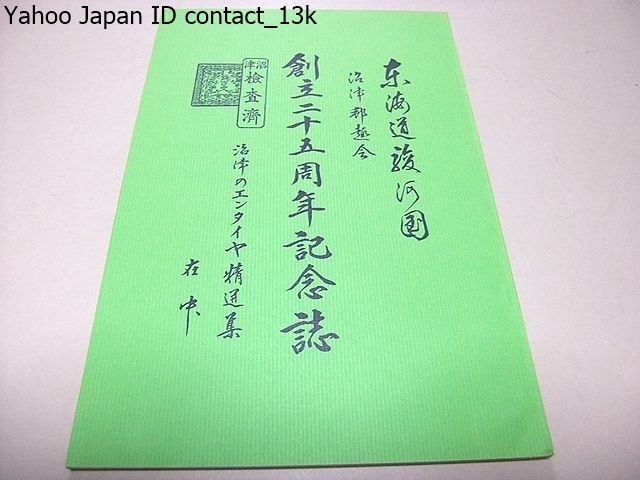 Yahoo Japan ID contact_13k
东海道駿河国
沼津郵趣会
創立二十五周年記念誌
沼津
検査済
沼津のエンタイヤ精選集
在中